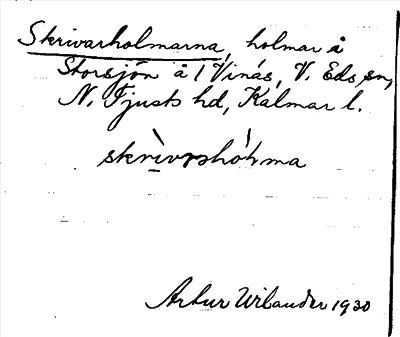 Skrivarholmarna, holmar å
Storsjön å 1 Vinäs, V. Eds sn,
N. Tjusts hd, Kalmar l.
skrìvarshól̀ma
Artur Wilander 1930